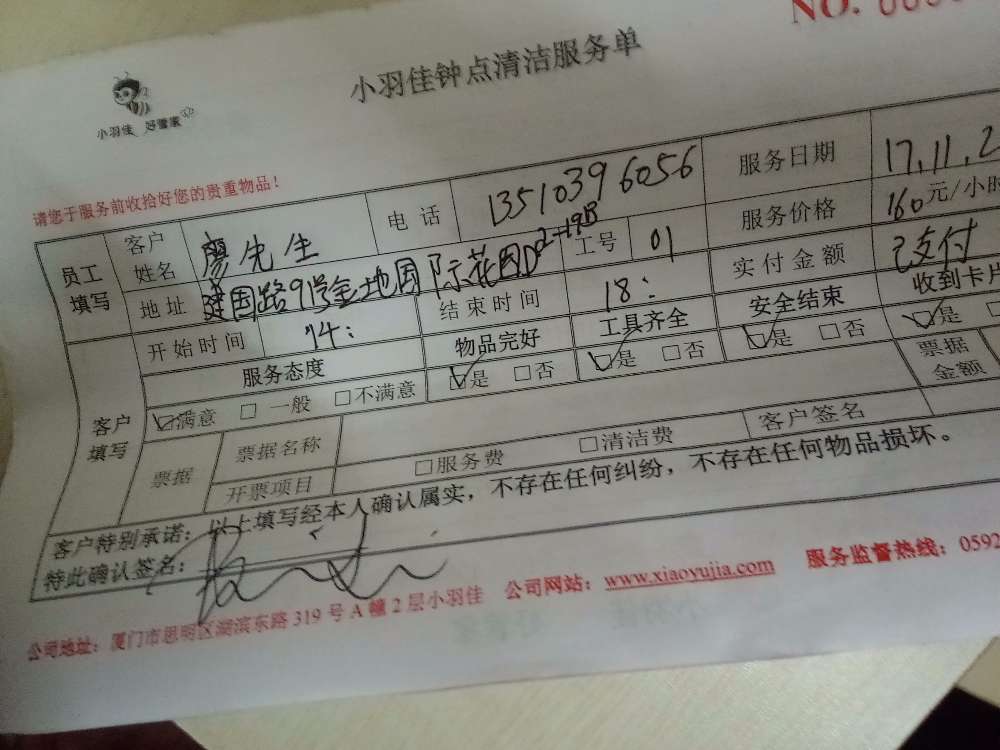 NO.
小羽佳钟点清洁服务单
小羽佳 好管家
请您于服务前收拾好您的贵重物品！
员工填写 客户姓名 廖先生 电话 13510396056 服务日期 17.11.2
地址 建国路91号金地国际花园D2-19B 工号 01 服务价格 160元/小时
开始时间 14: 结束时间 18: 实付金额 已支付
客户填写 服务态度 物品完好 工具齐全 安全结束 收到卡片
☑满意 □一般 □不满意 ☑是 □否 ☑是 □否 ☑是 □否 ☑是
票据 票据名称 票据金额
开票项目 □服务费 □清洁费 客户签名
客户特别承诺：以上填写经本人确认属实，不存在任何纠纷，不存在任何物品损坏。
特此确认签名：
公司地址：厦门市思明区湖滨东路319号A幢2层小羽佳 公司网站：www.xiaoyujia.com 服务监督热线：0592